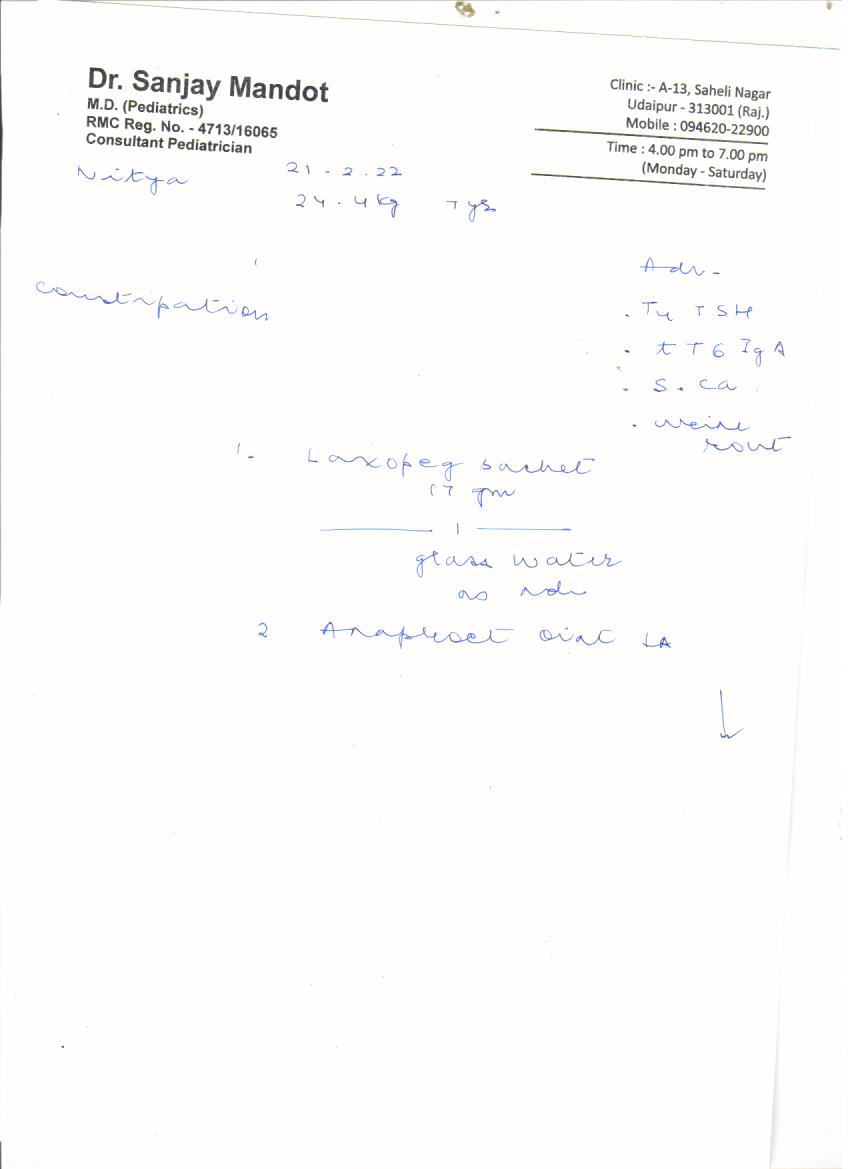 Dr. Sanjay Mandot
M.D. (Pediatrics)
RMC Reg. No. - 4713/16065
Consultant Pediatrician
Clinic :- A-13, Saheli Nagar
Udaipur - 313001 (Raj.)
Mobile : 094620-22900
Time : 4.00 pm to 7.00 pm
(Monday - Saturday)
Nitya 21-2.22
24.4kg 7 yrs
constipation
Adv -
. T4 TSH
- tTG IgA
- S. Ca .
. urine
rout
1- Laxopeg sachet
17 gm
1
glass water
as adv
2 Anaphoct oint LA